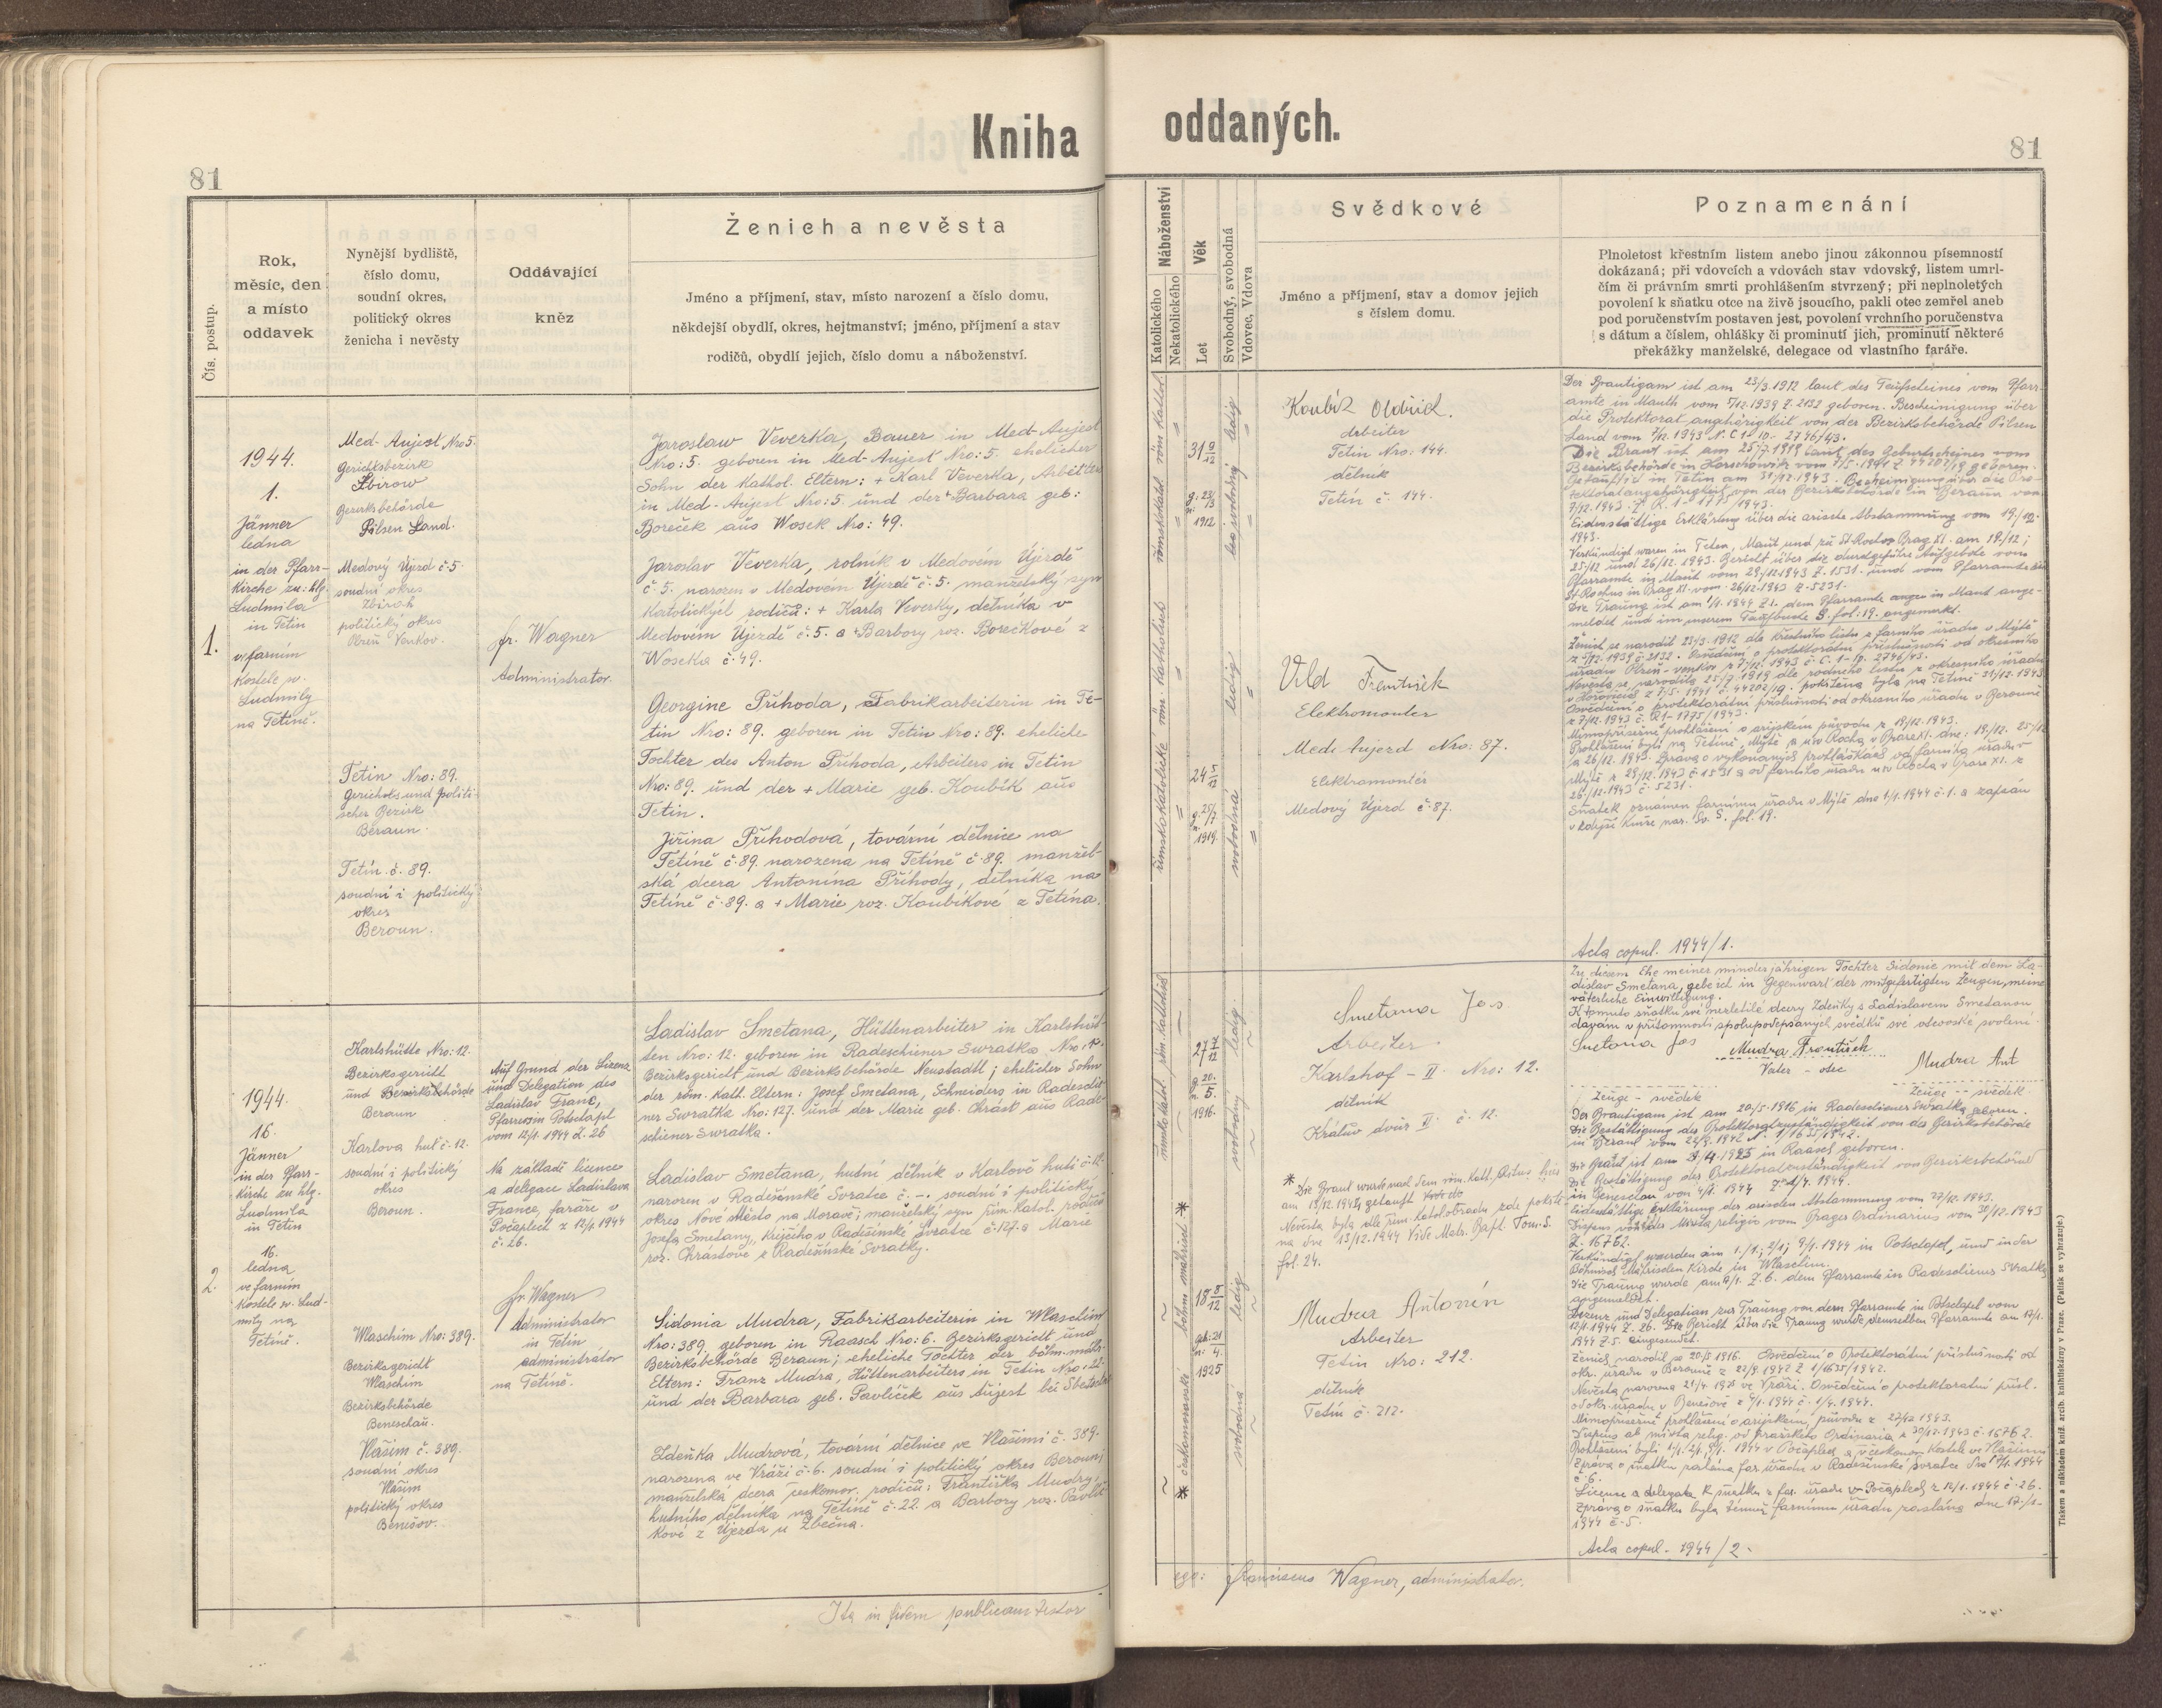 Kniha oddaných.
81
81
Čís. postup.
Rok,
měsíc, den
a místo
oddavek
Nynější bydliště,
číslo domu,
soudní okres,
politický okres
ženicha i nevěsty
Oddávající
kněz
Ženich a nevěsta
Jméno a příjmení, stav, místo narození a číslo domu,
někdejší obydlí, okres, hejtmanství; jméno, příjmení a stav
rodičů, obydlí jejich, číslo domu a náboženství.
Náboženství
Katolického
Nekatolického
Věk
Let
Svobodný, svobodná
Vdovec, Vdova
Svědkové
Jméno a příjmení, stav a domov jejich
s číslem domu.
Poznamenání
Plnoletost křestním listem anebo jinou zákonnou písemností
dokázaná; při vdovcích a vdovách stav vdovský, listem umrl-
čím či právním smrti prohlášením stvrzený; při neplnoletých
povolení k sňatku otce na živě jsoucího, pakli otec zemřel aneb
pod poručenstvím postaven jest, povolení vrchního poručenstva
s dátum a číslem, ohlášky či prominutí jich, prominutí některé
překážky manželské, delegace od vlastního faráře.
1.
1944.
1.
Jänner
ledna
in der Pfarr-
kirche zu: hlg.
Ludmila
in Tetin
ve farním
kostele sv.
Ludmily
na Tetíně.
Med-Aujest Nro 5.
Gerichtsbezirk
Sbirow
Bezirksbehörde
Pilsen Land.
Medový Újezd č. 5.
soudní okres
Zbiroh
politický okres
Plzeň Venkov.
Tetin Nro: 89.
Gerichts und Politi-
scher Bezirk
Beraun.
Tetín č. 89.
soudní i politický
okres
Beroun.
fr. Wagner
Administrator
Jaroslaw Veverka, Bauer in Med-Aujest
Nro: 5. geboren in Med-Aujest Nro: 5. ehelicher
Sohn der Kathol. Eltern: + Karl Veverka, Arbeiters
in Med-Aujest Nro: 5 und der + Barbara geb:
Boreček aus Wosek Nro: 49.
Jaroslav Veverka, rolník v Medovém Újezdě
č. 5. narozen v Medovém Újezdě č. 5. manželský syn
katolických rodičů: + Karla Veverky, dělníka v
Medovém Újezdě č. 5. a + Barbory roz. Borečkové z
Woseka č. 49.
Georgine Příhoda, Fabrikarbeiterin in Te-
tin Nro: 89. geboren in Tetin Nro: 89. eheliche
Tochter des Anton Příhoda, Arbeiters in Tetin
Nro: 89. und der + Marie geb. Koubík aus
Tetin.
Jiřina Příhodová, tovární dělnice na
Tetíně č. 89. narozena na Tetíně č. 89. manžel-
ská dcera Antonína Příhody, dělníka na
Tetíně č. 89. a + Marie roz. Koubíkové z Tetína.
31 9/12
1912
24 5/12
1919
ledig
svobodný
ledig
svobodná
Koubík Oldřich.
Arbeiter
Tetin Nro: 144.
dělník
Tetín č. 144.
Vild František
Elektromonter
Med. Aujezd Nro: 87.
Elektromontér
Medový Újezd č. 87.
Der Brautigam ist am 23/3. 1912 laut des Taufscheines vom Pfarr-
amte in Mauth vom 5/12. 1939 Z. 2132 geboren. Bescheinigung über
die Protektorat angehörigkeit von der Bezirksbehörde Pilsen
Land vom 7/12. 1943 N. C 1-10.- 2746/43.
Die Braut ist am 25/7. 1919 laut des Geburtscheines vom
Bezirksbehörde in Horschowitz vom 7/5. 1941 Z. 44202/19 geboren.
Getauft ist in Tetin am 31/12. 1943. Bescheinigung über die Pro-
tektoratangehörigkeit von der Bezirksbehörde in Beraun vom
7/12. 1943. Z. R. 1-1775/1943.
Eidesstättige Erklärung über die arische Abstammung vom 19./12.
1943.
Verkündigt waren in Tetin, Maut und zu St. Rochus Prag XI. am 19/12;
25/12 und 26/12. 1943. Bericht über die durchgeführte Aufgebote vom
Pfarramte in Maut vom 29/12 1943 Z. 1531. und vom Pfarramte bei
St. Rochus in Prag XI. vom 26/12. 1943 Z. 5231.
Die Trauung ist am 1/1. 1944 Z. 1. dem Pfarramte in Maut ange-
meldet und im unserem Taufbuche S. fol. 19. angemerkt.
Ženich se narodil 23/3. 1912 dle křestního listu z farního úřadu v Mýtě
z 5/12. 1939 č. 2132. Osvědčení o protektorátní příslušnosti od okresního
úřadu Plzeň-venkov z 7/12. 1943 č. C. 1-10. 2746/43.
Nevěsta se narodila 25/7. 1919 dle rodného listu z okresního úřadu
v Hořovicích z 7/5. 1941 č. 44202/19. pokřtěna byla na Tetíně 31/12. 1943.
Osvědčení o protektorátní příslušnosti od okresního úřadu v Berouně
z 7/12. 1943 č. R 1-1775/1943.
Mimopřísežné prohlášení o arijském původu z 19/12. 1943.
Prohlášeni byli na Tetíně, Mýtě a u sv Rocha v Praze XI. dne: 19/12. 25/12
a 26/12. 1943. Zpráva o vykonaných prohláškách od farního úřadu v
Mýtě z 29/12. 1943 č. 1531 a od farního úřadu u sv Rocha v Praze XI. z
26/12. 1943 č. 5231.
Sňatek oznámen farnímu úřadu v Mýtě dne 1/1. 1944 č. 1. a zapsán
v zdejší knize nar. S. fol. 19.
Acta copul. 1944/1.
2.
1944.
16.
Jänner
in der Pfarr-
kirche zu hlg.
Ludmila
in Tetin
16.
ledna
ve farním
kostele sv. Lud-
mily na
Tetíně.
Karlshütte Nro: 12.
Bezirksgericht
und Bezirksbehörde
Beraun
Karlova huť č. 12.
soudní i politický
okres
Beroun.
Wlaschim Nro: 389.
Bezirksgericht
Wlaschim
Bezirksbehörde
Beneschau.
Vlašim č. 389.
soudní okres
Vlašim
politický okres
Benešov.
Auf Grund der Lizenz
und Delegation des
Ladislav Franc,
Pfarrers in Potschapl
vom 12/1. 1944 Z. 26
Na základě licence
a delegace Ladislava
France, faráře v
Počaplech z 12/1 1944
č. 26.
fr. Wagner
Administrator
in Tetin
administrátor
na Tetíně.
Ladislav Smetana, Hüttenarbeiter in Karlshüt-
ten Nro: 12. geboren in Radeschiener Swratka Nro:
Bezirksgericht und Bezirksbehörde Neustadtl; ehelicher Sohn
der röm. kath. Eltern: Josef Smetana, Schneiders in Radeschie-
ner Swratka Nro: 127. und der Marie geb. Chrást aus Rade-
schiener Swratka.
Ladislav Smetana, hutní dělník v Karlově huti č. 12.
narozen v Radešínské Svratce č. -. soudní i politický
okres Nové Město na Moravě; manželský syn řím. katol. rodičů
Josefa Smetany, krejčího v Radešínské Svratce č. 127. a Marie
roz. Chrástové z Radešínské Svratky.
Sidonia Mudra, Fabriksarbeiterin in Wlaschim
Nro: 389. geboren in Raasch Nro: 6. Bezirksgericht und
Bezirksbehörde Beraun; eheliche Tochter der böhm. mähr.
Eltern: Franz Mudra, Hüttenarbeiters in Tetin Nro: 22.
und der Barbara geb. Pavlíček aus Aujest bei
Zdeňka Mudrová, tovární dělnice ve Vlašimi č. 389.
narozena ve Vráži č. 6. soudní i politický okres Beroun;
manželská dcera českomor. rodičů: Františka Mudry,
hutního dělníka na Tetíně č. 22. a Barbory roz. Pavlíč-
kové z Újezda u Zbečna.
27 7/12
1916.
18 8/12
1925
ledig
svobodný
ledig
svobodná
Smetana Jos.
Arbeiter
Karlshof - II. Nro: 12.
dělník
Králův dvůr II. č. 12.
* Die Braut wurde nach dem röm. kath. Ritus hier
am 13/12 1944 getauft
Nevěsta byla dle řím. katol. obřadu zde pokřtě-
na dne 13/12. 1944 Vide Matr. Bapt. Tom. S.
fol. 24.
Mudra Antonín
Arbeiter
Tetin Nro: 212.
dělník
Tetín č. 212.
Zu diesem Ehe meiner minderjährigen Tochter Sidonie mit dem La-
dislav Smetana, gebe ich in Gegenwart der mitgefertigten Zeugen, meine
väterliche Einwilligung.
K tomuto sňatku své nezletilé dcery Zdeňky s Ladislavem Smetanou
dávám v přítomnosti spolupodepsaných svědků své otcovské svolení.
Smetana Jos
Mudra František
Vater - otec
Mudra Ant
Zeuge - svědek
Zeuge - svědek
Der Brautigam ist am 20./5. 1916 in Radeschiener Swratka geboren.
Die Bestättigung der Protektoratzuständigkeit von der Bezirksbehörde
in Beraun vom 22/9. 1942 N. 1/1635/1942.
Die Braut ist am 21/4. 1925 in Raasch geboren.
Die Bestättigung der Protektoratzuständigkeit von Bezirksbehörde
in Beneschau vom 4/1. 1944 Z. 1/4. 1944.
Eidesstättige Erklärung der arischen Abstammung vom 27/12. 1943.
Dispens über der Mixta religio vom Prager Ordinarius vom 30/12. 1943
Z. 16762.
Verkündigt wurden am 1./1.; 2/1; 9/1. 1944 in Potschapl, und in der
Böhmisch Mährischen Kirche in Wlaschim.
Die Trauung wurde am Z. 6. dem Pfarramte in Radeschiener Swratka
angemeldet.
Lizenz und Delegation zur Trauung von dem Pfarramte in Potschapl vom
12/1. 1944 Z. 26. Der Bericht über die Trauung wurde demselben Pfarramte am 17/1.
1944 Z. 5. eingesendet.
Ženich narodil se 20/5 1916. Osvědčení o Protektorátní příslušnosti od
okr. úřadu v Berouně z 22/9. 1942 Z 1/1635/1942.
Nevěsta narozena 21/4. 1925 ve Vráži. Osvědčení o protektorátní přísl.
od okr. úřadu v Benešově z 4/1. 1944 č. 1/4. 1944.
Mimopřísežné prohlášení o arijském původu z 27/12 1943.
Dispens ab mixta relig. od pražského Ordinaria z 30/12. 1943 č. 16762.
Prohlášeni byli 1/1. 2/1. 9/1. 1944 v Počaplech a v českomor. kostele ve Vlašimi
Zpráva o sňatku zaslána far. úřadu v Radešínské Svratce 1944
č. 6.
Licence a delegace k sňatku z far. úřadu v Počaplech z 12/1. 1944 č. 26.
Zpráva o sňatku byla témuž farnímu úřadu zaslána dne 17./1.
1944 č. 5.
Acta copul. 1944/2.
Ita in fidem publicam testor
ego: Franciscus Wagner, administrator.
Tiskem a nákladem kníž. arcib. knihtiskárny v Praze. (Patisk se vyhrazuje.)